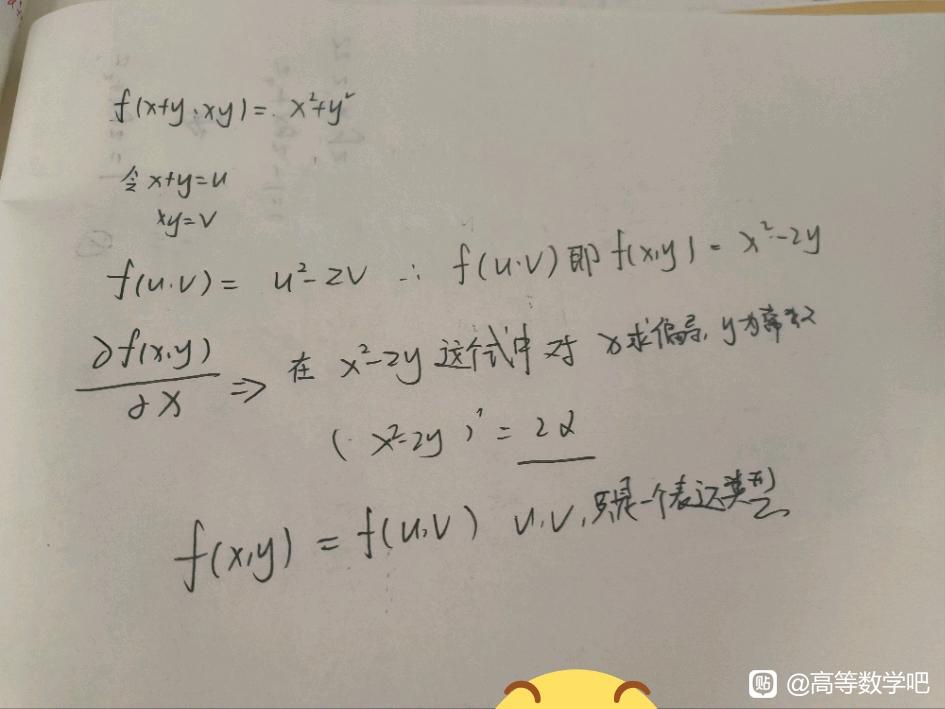 f(x+y,xy)= x²+y²
令 x+y=u
xy=v
f(u,v)= u²-2v ∴ f(u,v)即 f(x,y)= x²-2y
∂f(x,y)
∂x
⇒ 在 x²-2y 这个式中 对 x求偏导, y为常数
(x²-2y)' = 2x
f(x,y) = f(u,v) u,v,只是一个表达类型
贴 @高等数学吧